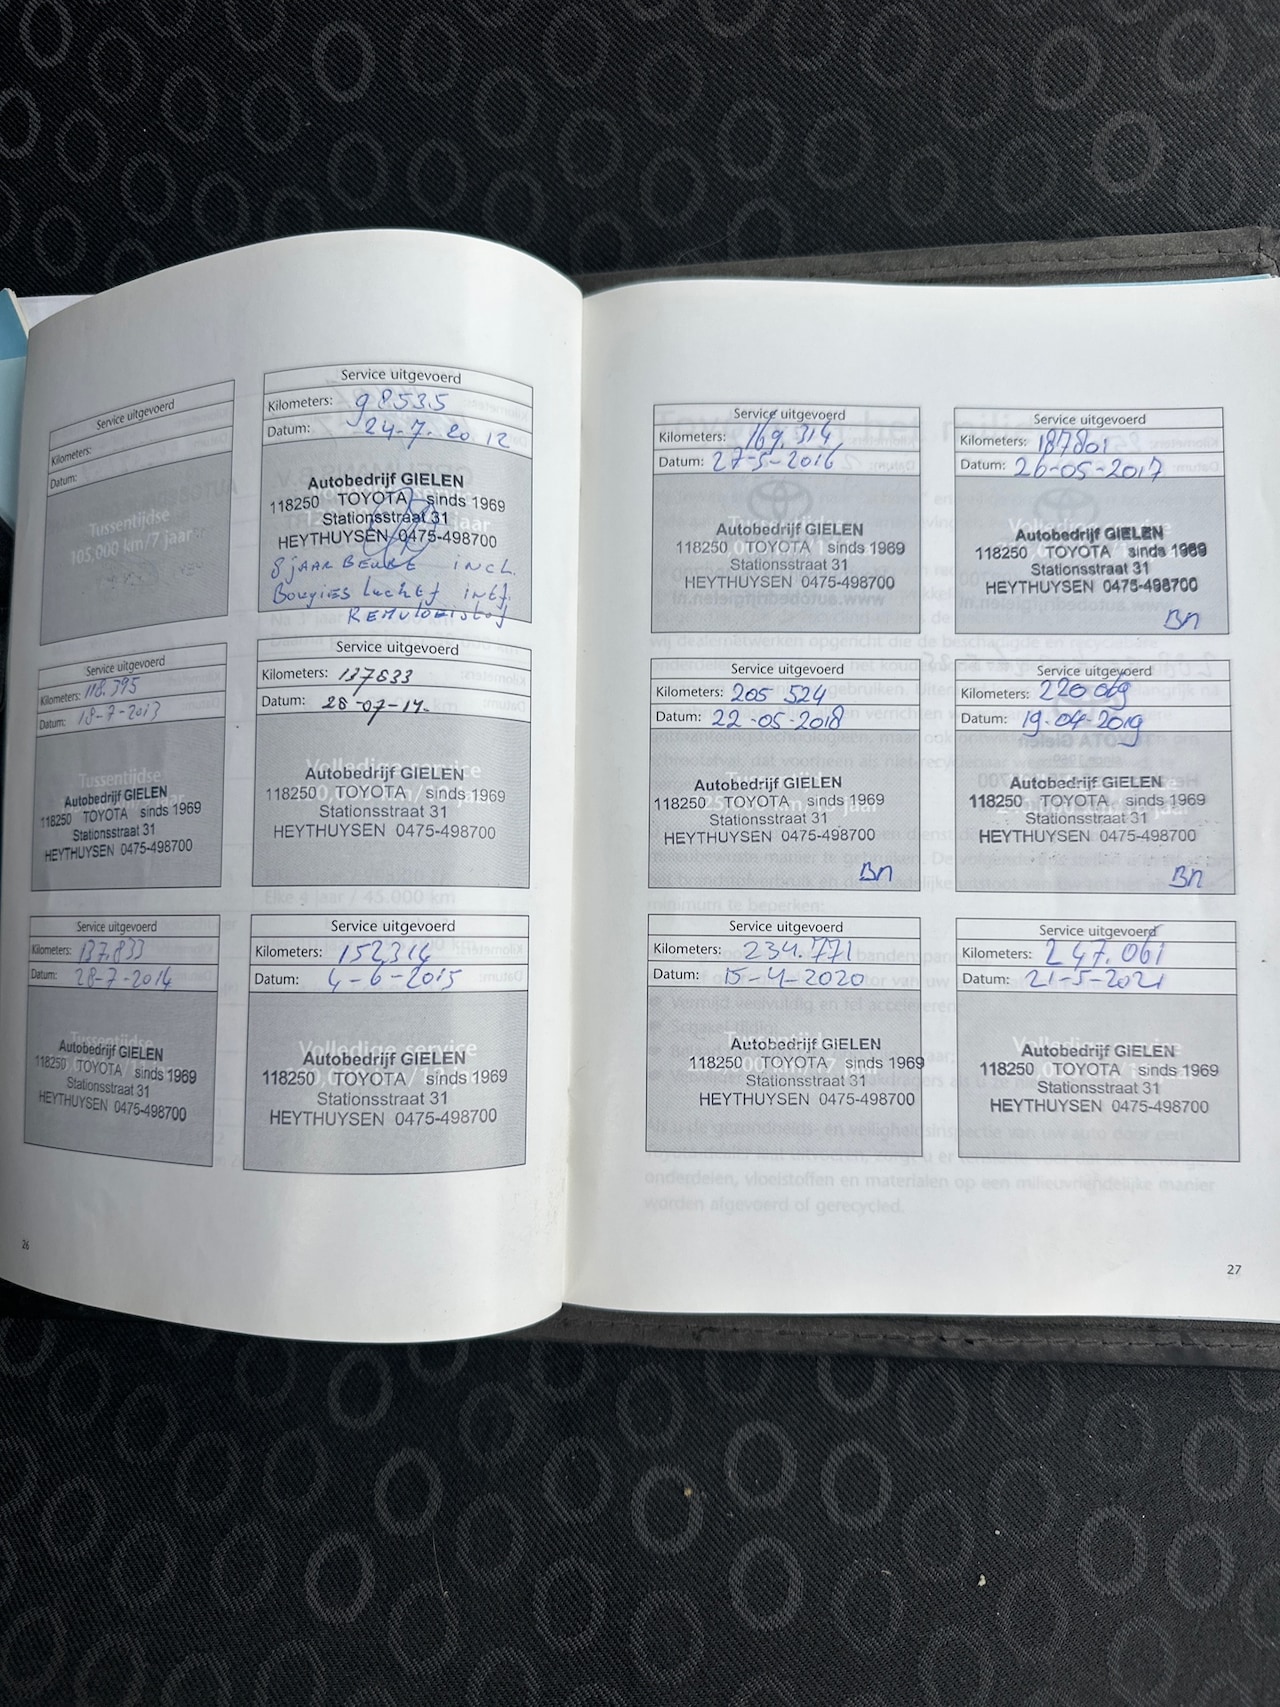 Service uitgevoerd
Kilometers:
Datum:
Tussentijdse
105,000 km/7 jaar
Service uitgevoerd
Kilometers: 98535
Datum: 24-7-2012
Autobedrijf GIELEN
118250 TOYOTA sinds 1969
Stationsstraat 31
HEYTHUYSEN 0475-498700
8 JAAR BEURT INCL.
Bougies Luchtf intf.
REMVLOEISTOF
Service uitgevoerd
Kilometers: 118.395
Datum: 18-7-2013
Tussentijdse
Autobedrijf GIELEN
118250 TOYOTA sinds 1969
Stationsstraat 31
HEYTHUYSEN 0475-498700
Service uitgevoerd
Kilometers: 137833
Datum: 28-07-14.
Volledige service
Autobedrijf GIELEN
118250 TOYOTA sinds 1969
Stationsstraat 31
HEYTHUYSEN 0475-498700
Service uitgevoerd
Kilometers: 137.833
Datum: 28-7-2014
Tussentijdse
Autobedrijf GIELEN
118250 TOYOTA sinds 1969
Stationsstraat 31
HEYTHUYSEN 0475-498700
Service uitgevoerd
Kilometers: 152314
Datum: 4-6-2015
Volledige service
Autobedrijf GIELEN
118250 TOYOTA sinds 1969
Stationsstraat 31
HEYTHUYSEN 0475-498700
26
Service uitgevoerd
Kilometers: 169.314
Datum: 27-5-2016
Autobedrijf GIELEN
118250 TOYOTA sinds 1969
Stationsstraat 31
HEYTHUYSEN 0475-498700
Service uitgevoerd
Kilometers: 187801
Datum: 26-05-2017
Autobedrijf GIELEN
118250 TOYOTA sinds 1969
Stationsstraat 31
HEYTHUYSEN 0475-498700
BN
Service uitgevoerd
Kilometers: 205 524
Datum: 22-05-2018
Autobedrijf GIELEN
118250 TOYOTA sinds 1969
Stationsstraat 31
HEYTHUYSEN 0475-498700
BN
Service uitgevoerd
Kilometers: 220069
Datum: 19-04-2019
Autobedrijf GIELEN
118250 TOYOTA sinds 1969
Stationsstraat 31
HEYTHUYSEN 0475-498700
BN
Service uitgevoerd
Kilometers: 234.771
Datum: 15-4-2020
Autobedrijf GIELEN
118250 TOYOTA sinds 1969
Stationsstraat 31
HEYTHUYSEN 0475-498700
Service uitgevoerd
Kilometers: 247.061
Datum: 21-5-2021
Autobedrijf GIELEN
118250 TOYOTA sinds 1969
Stationsstraat 31
HEYTHUYSEN 0475-498700
27